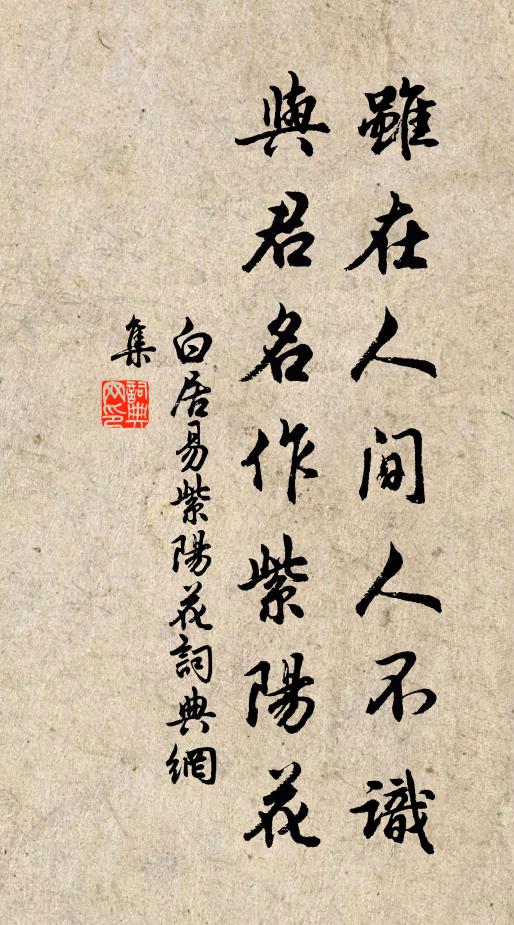 雖在人间人不識
與君名作紫陽花
白居易紫陽花詞典網
集
詞典
网印